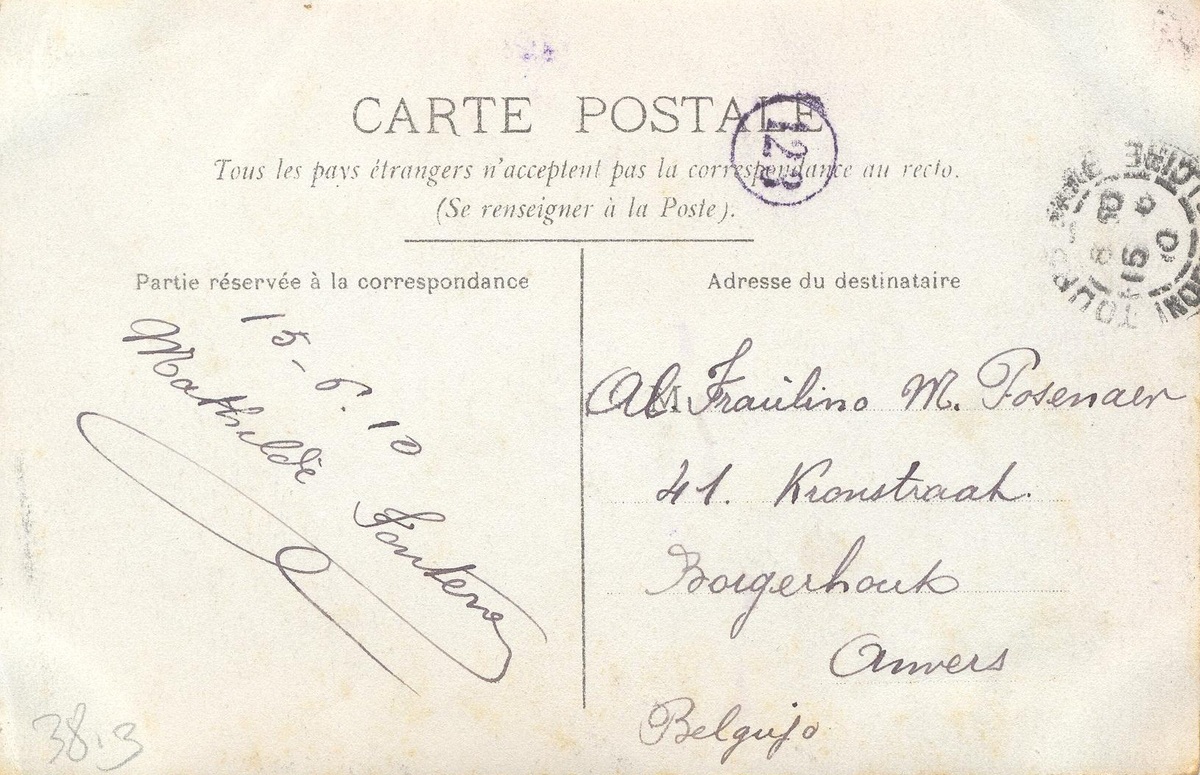 CARTE POSTALE
123
Tous les pays étrangers n'acceptent pas la correspondance au recto.
(Se renseigner à la Poste).
Partie réservée à la correspondance
15-6.10
Mathilde
Adresse du destinataire
Al. Fraŭlino M. Posenaer
41. Kronstraat.
Borgerhout
Anvers
Belgujo
38.3